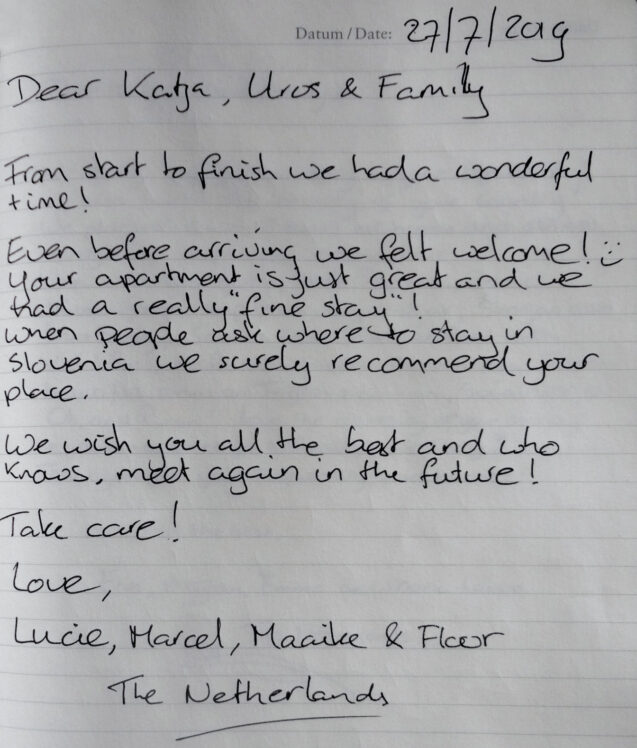 Datum / Date: 27/7/2019
Dear Katja, Uros & Family
From start to finish we had a wonderful
time!
Even before arriving we felt welcome! :)
Your apartment is just great and we
had a really "fine stay"!
When people ask where to stay in
Slovenia we surely recommend your
place.
We wish you all the best and who
knows, meet again in the future!
Take care!
Love,
Lucie, Marcel, Maaike & Floor
The Netherlands